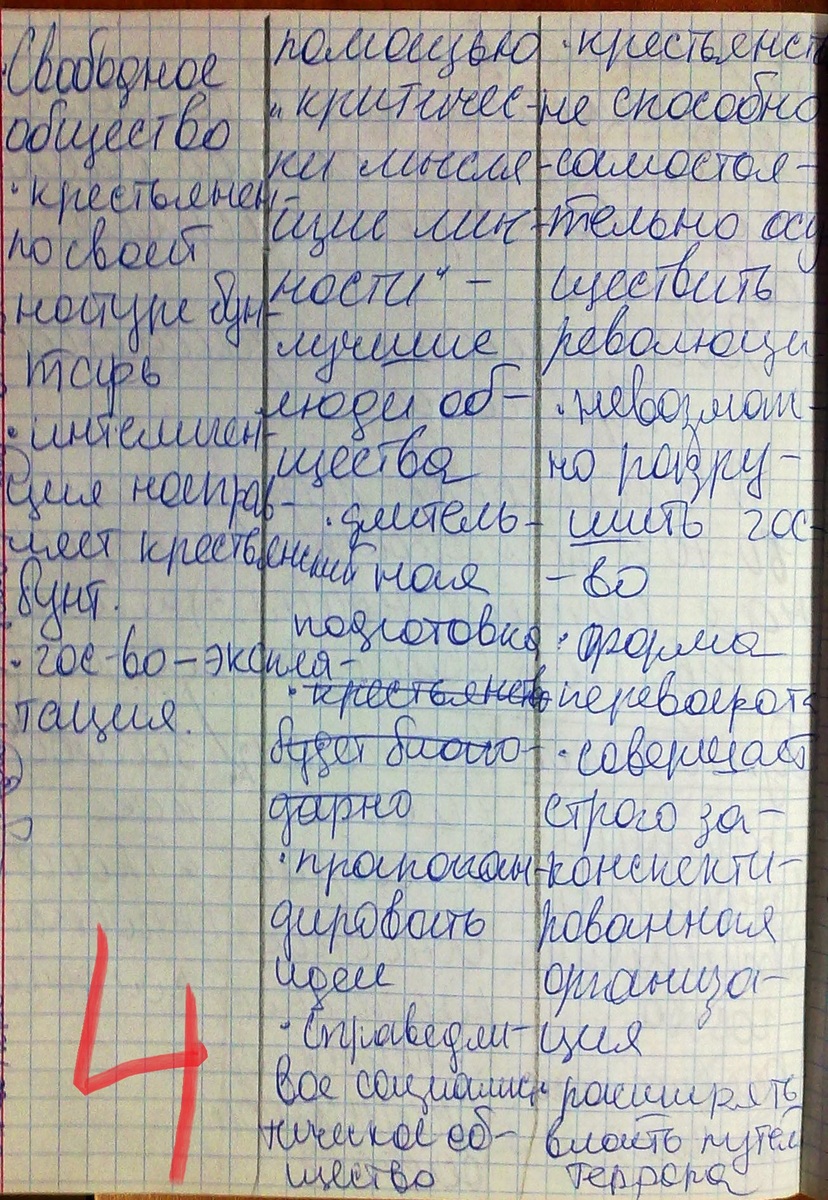 Свободное
общество
· крестьянен
по своей
натуре бун-
тарь
· интелиген-
ция направ-
ляет крестьянский
бунт.
· гос-во – экспля-
тация.
помощью
"критичес-
ки мысля-
щие лич-
ности" –
лучшие
люди об-
щества
· длитель-
ная
подготовка
· крестьянство
будет благо-
дарно
· пропоган-
дировать
идеи
· Справедли-
вое социалис-
тическое об-
щество
· крестьянст
не способно
самостоя-
тельно осу
ществить
революци
· невозмож-
но разру-
шить гос-
-во
· форма
переворота
· совершает
строго за-
конспекти-
рованная
организа-
ция
· расширять
власть путем
террора
4